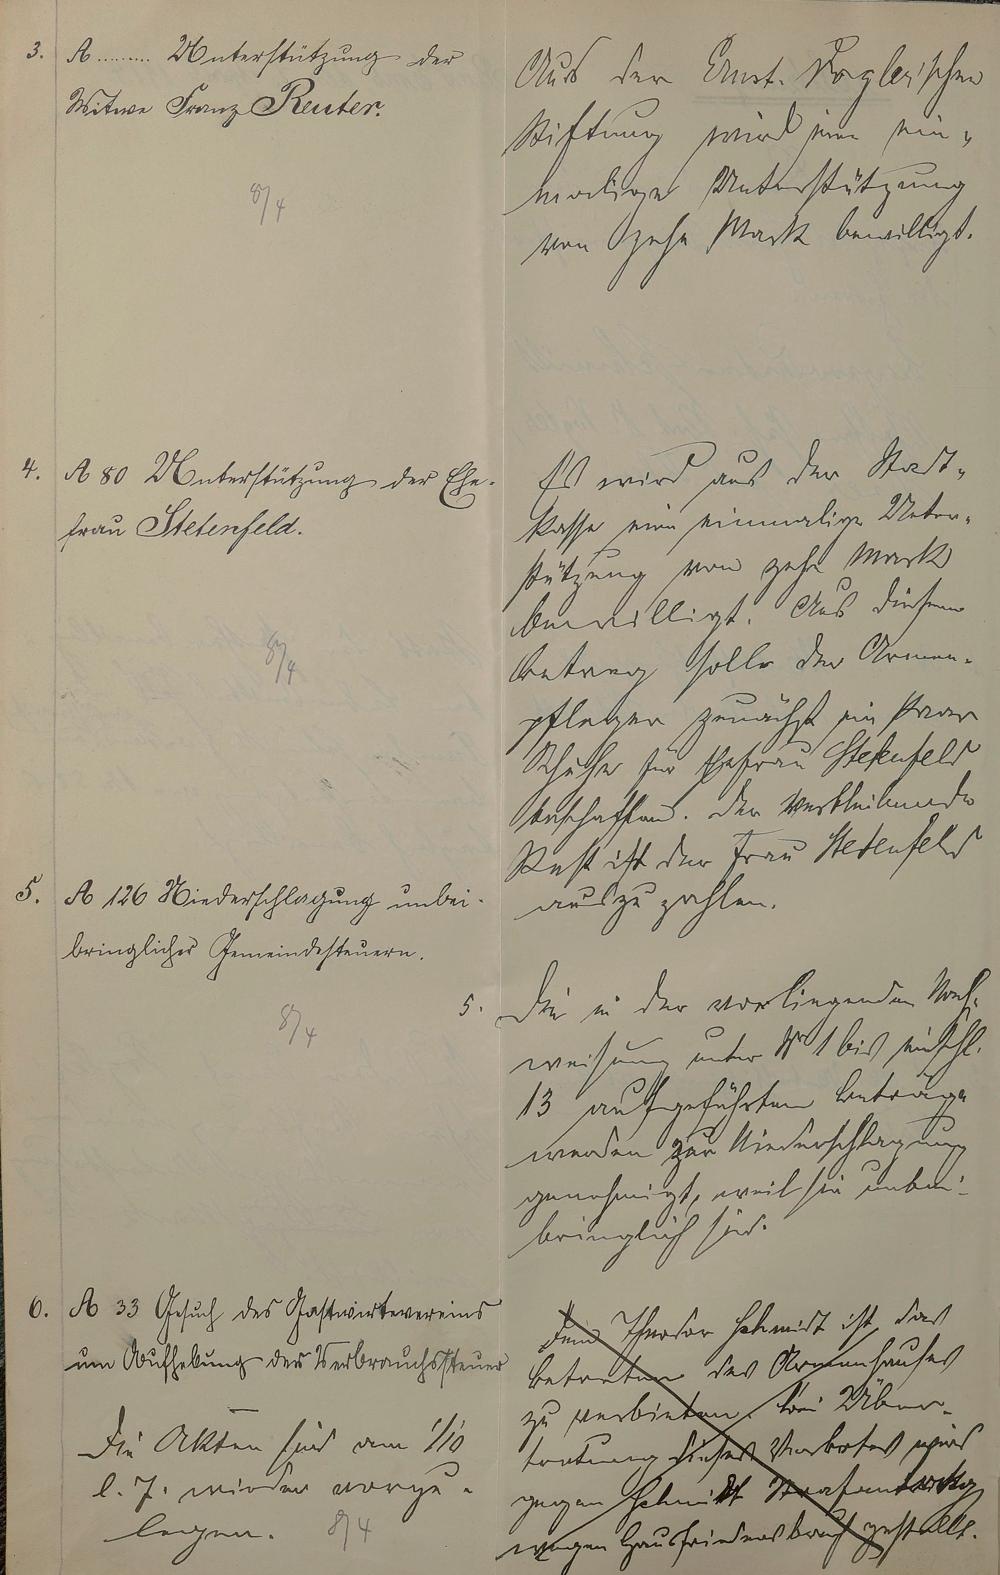 3. A ......... Unterstützung der
Witwe Franz Reuter.
8/4
Aus der Ernst. Vogler'schen
Stiftung wird eine ein-
malige Unterstützung
von zehn Mark bewilligt.
4. A 80 Unterstützung der Ehe-
frau Stetenfeld.
8/4
Es wird aus der Stadt-
kasse eine einmalige Unter-
stützung von zehn Mark
bewilligt. Aus diesem
Betrag solle der Armen-
pfleger zunächst ein Paar
Schuhe für Ehefrau Stetenfeld
beschaffen. Der verbleibende
Rest ist der Frau Stetenfeld
auszuzahlen.
5. A 126 Niederschlagung unbei-
bringlicher Gemeindesteuern.
8/4
5. Die in der vorliegenden Nach-
weisung unter Nr 1 bis einschl.
13 aufgeführten Beträge
werden zur Niederschlagung
genehmigt, weil sie unbei-
bringlich sind.
6. A 33 Gesuch des Gastwirtevereins
um Aufhebung der Verbrauchssteuer
Die Akten sind am 1/10
l. J. wieder vorzu-
legen. 8/4
Dem Theodor Schmidt ist das
Betreten des Armenhauses
zu verbieten. Bei Über-
tretung dieses Verbotes wird
gegen Schmidt Strafantrag
wegen Hausfriedensbruch gestellt.